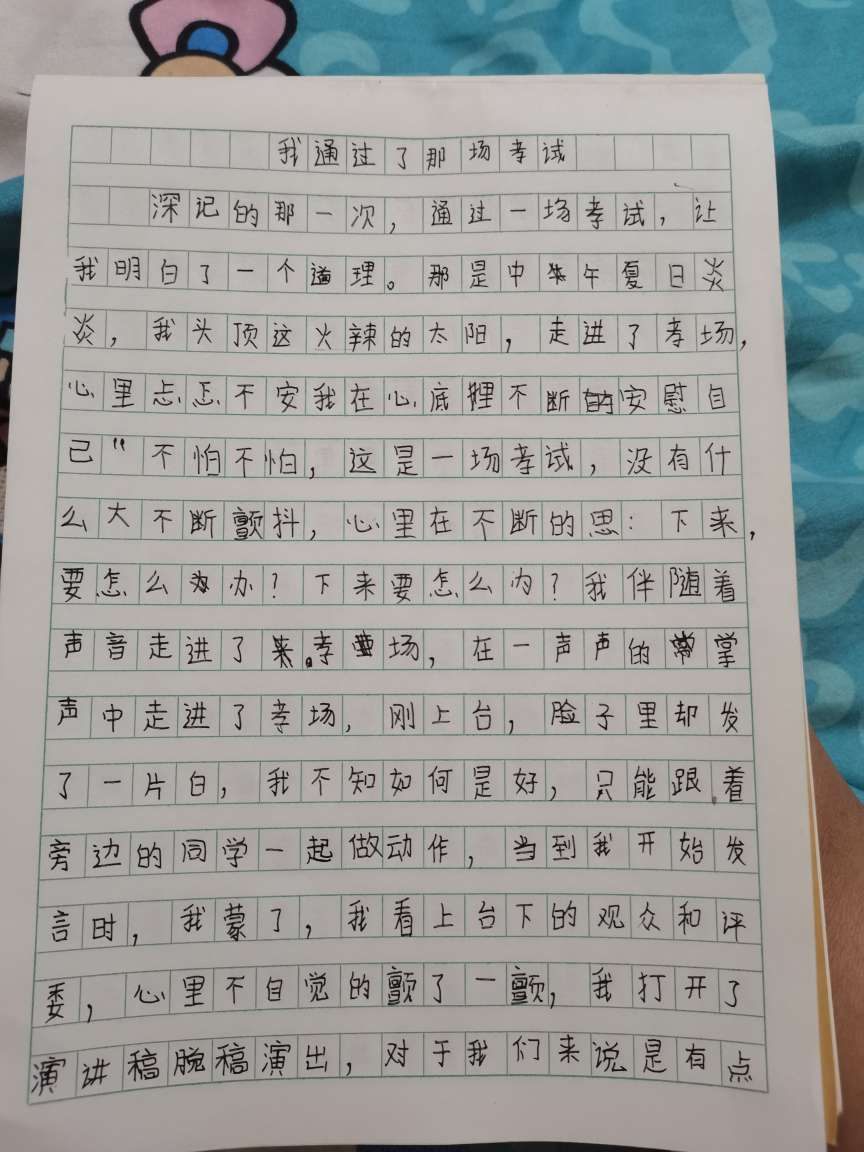 我通过了那场孝试
深记的那一次，通过一场孝试，让
我明白了一个道理。那是中午夏日炎
炎，我头顶这火辣的太阳，走进了孝场，
心里忐忑不安我在心底狸不断的安慰自
己“不怕不怕，这是一场孝试，没有什
么大不断颤抖，心里在不断的思：下来，
要怎么办？下来要怎么为？我伴随着
声音走进了孝场，在一声声的掌
声中走进了孝场，刚上台，脸子里却发
了一片白，我不知如何是好，只能跟着
旁边的同学一起做动作，当到我开始发
言时，我蒙了，我看上台下的观众和评
委，心里不自觉的颤了一颤，我打开了
演讲稿脱稿演出，对于我们来说是有点